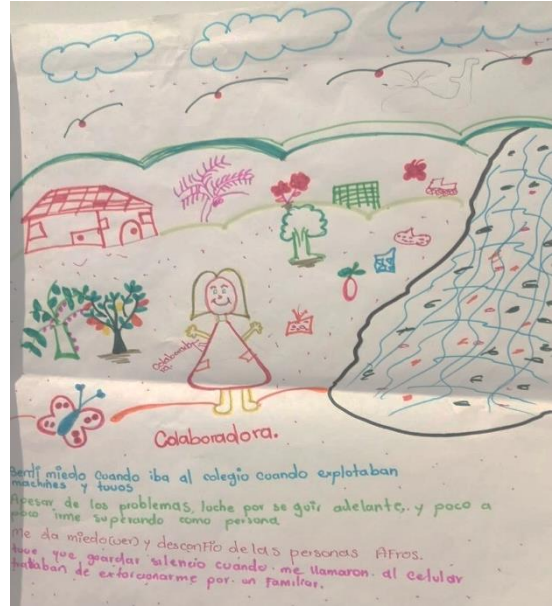 Colaboradora
Colaboradora.
Sentí miedo cuando iba al colegio cuando explotaban
machines y tuvos
Apesar de los problemas, luche por seguir adelante, y poco a
poco irme superando como persona
me da miedo (ver) y desconfío de las personas Afros.
tuve que guardar silencio cuando me llamaron al celular
trataban de extorcionarme por un familiar.